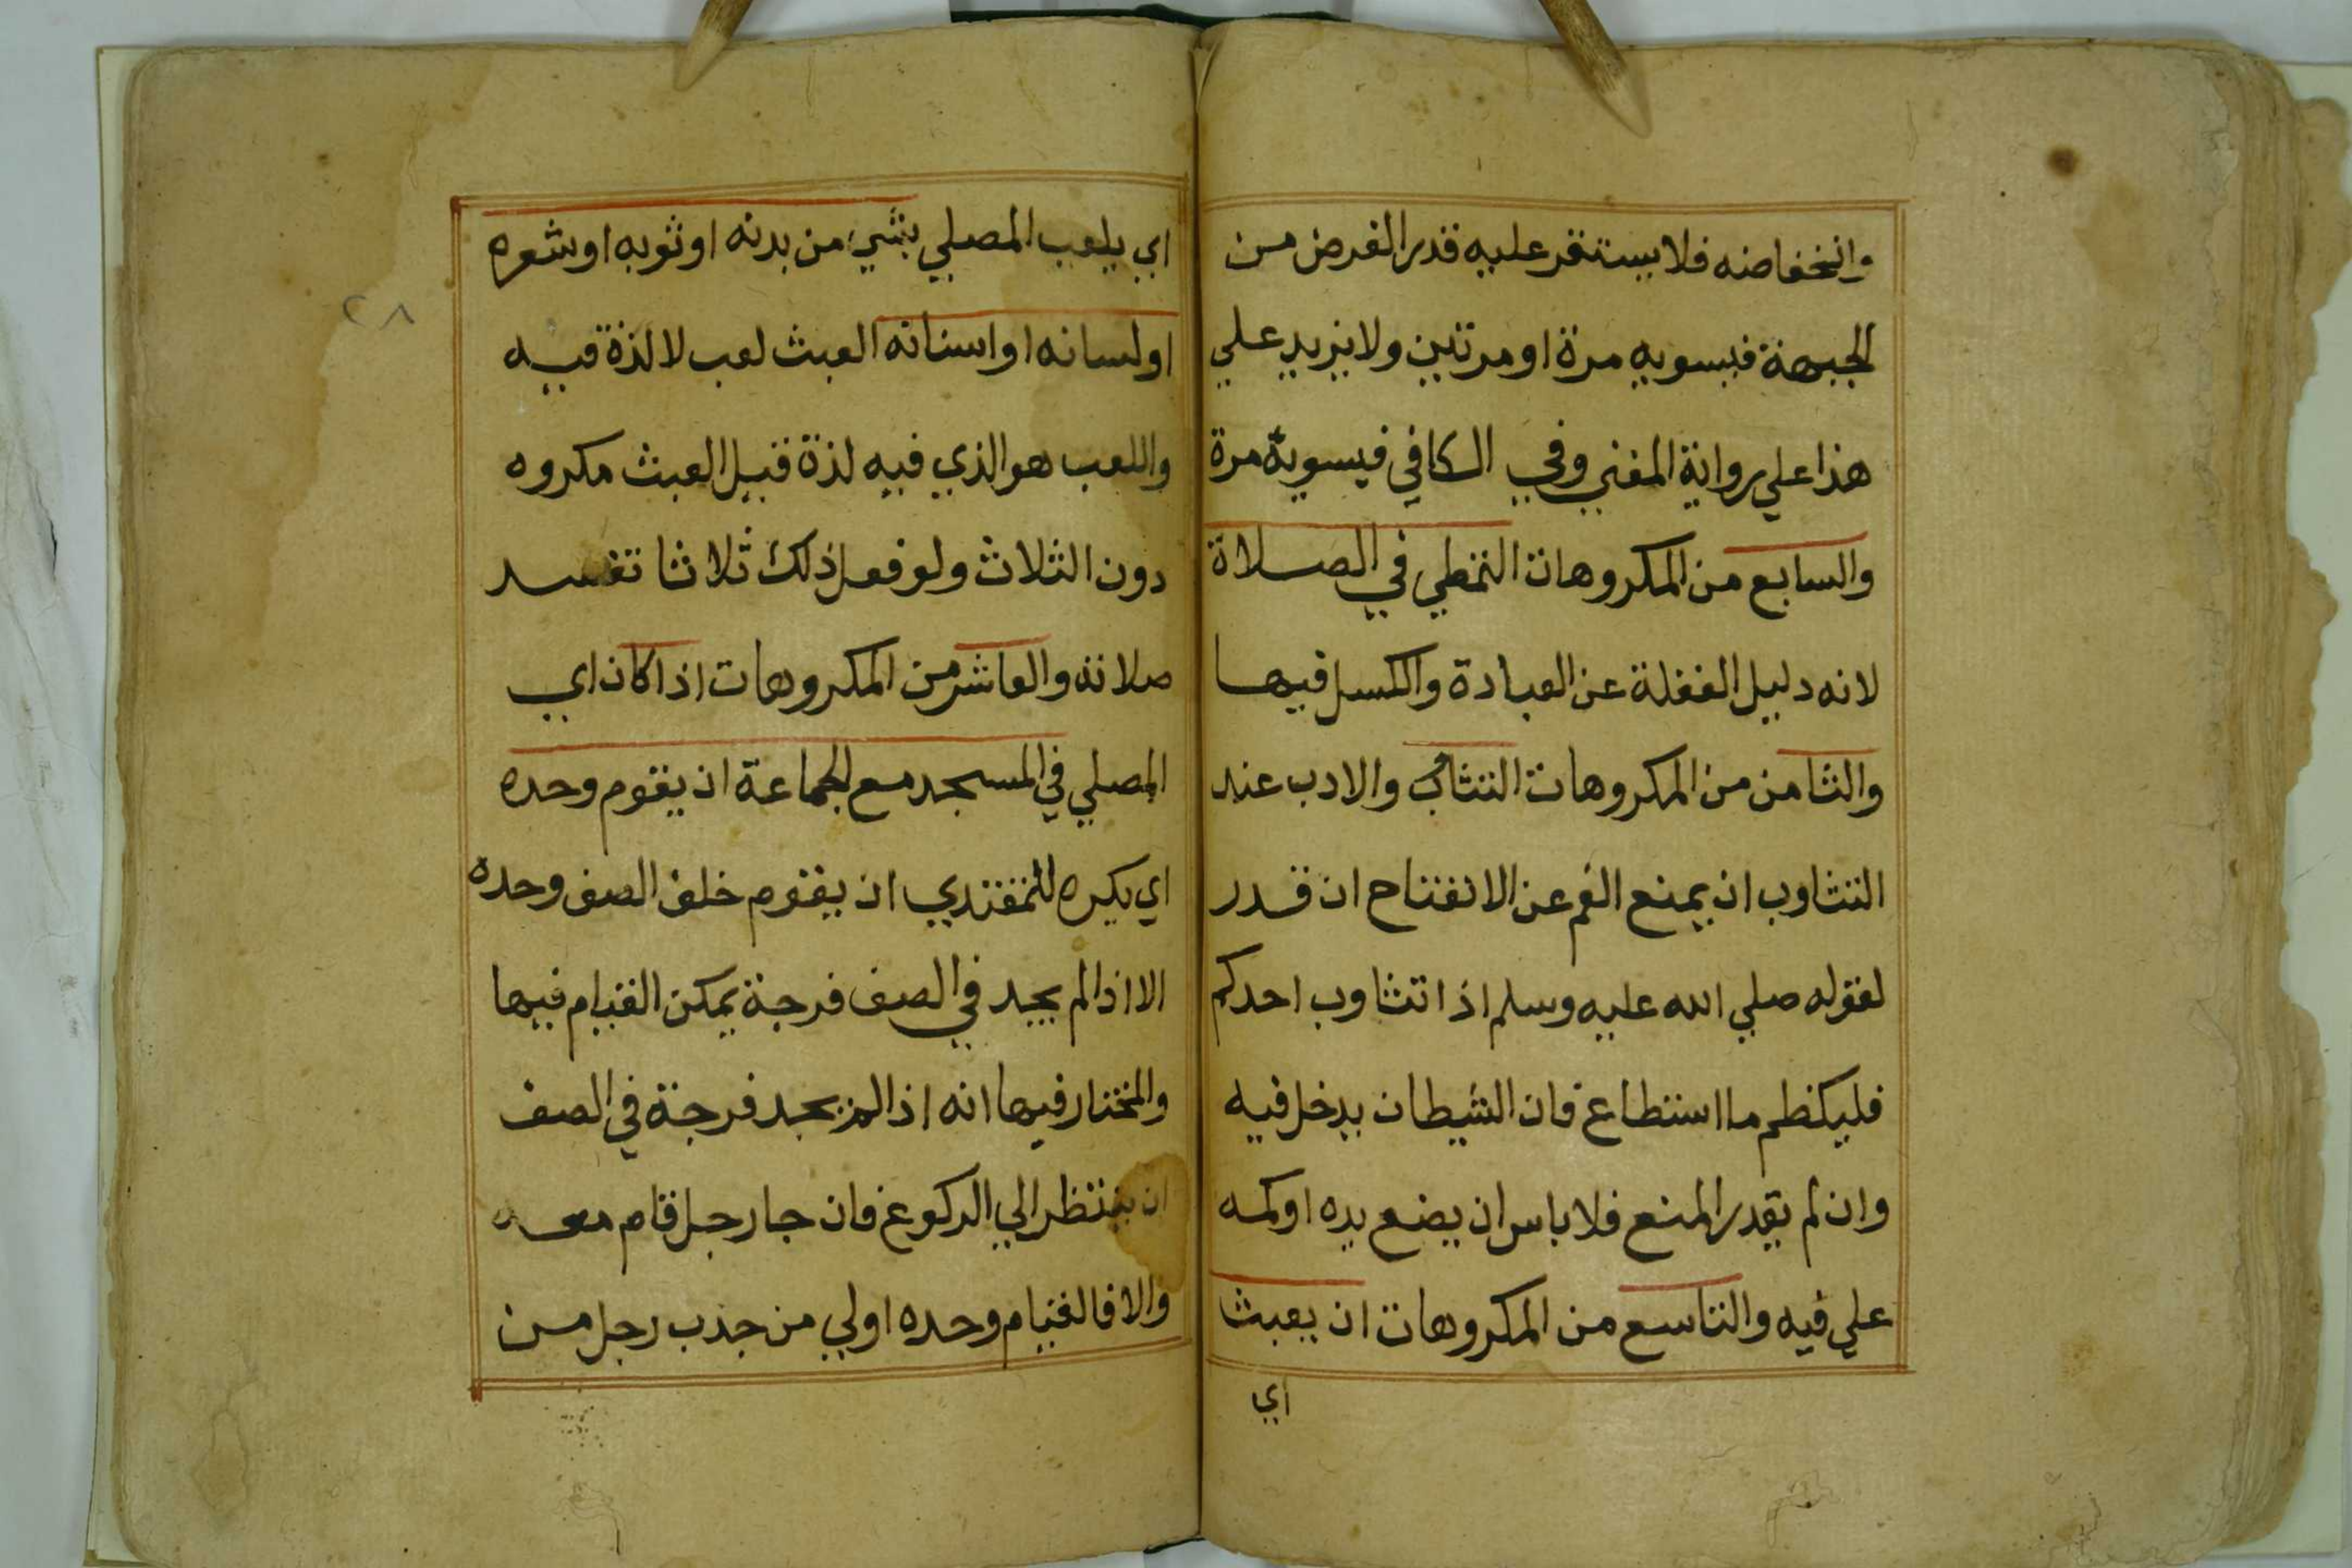 وانخفاضه فلا يستقر عليه قدر الفرض من
الجبهة فيسويه مرة او مرتين ولا يزيد علي
هذا علي رواية المغني وفي الكافي فيسويه مرة
والسابع من المكروهات التمطي في الصلاة
لانه دليل الغفلة عن العبادة والكسل فيها
والثامن من المكروهات التثاوب والادب عند
التثاوب ان يمنع الفم عن الانفتاح ان قدر
لقوله صلي الله عليه وسلم اذا تثاوب احدكم
فليكظم ما استطاع فان الشيطان يدخل فيه
وان لم يقدر المنع فلا باس ان يضع يده او كمه
علي فيه والتاسع من المكروهات ان يعبث
اي
اي يلعب المصلي بشيء من بدنه او ثوبه او شعره
٢٨
او لسانه او اسنانه العبث لعب لا لذة فيه
واللعب هو الذي فيه لذة قيل العبث مكروه
دون الثلاث ولو فعل ذلك ثلاثا تفسد
صلاته والعاشر من المكروهات اذا كان اي
المصلي في المسجد مع الجماعة ان يقوم وحده
اي يكره للمقتدي ان يقوم خلف الصف وحده
الا اذا لم يجد في الصف فرجة يمكن القيام فيها
والمختار فيها انه اذا لم يجد فرجة في الصف
ان ينتظر الي الركوع فان جا رجل قام معه
والا فالقيام وحده اولي من جذب رجل من